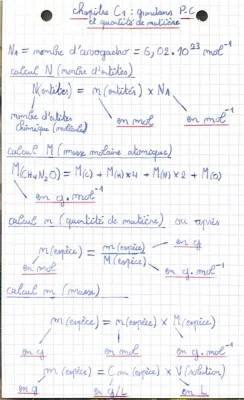 chapitre C1 : grandeurs P.C
et quantité de matière
NA = nombre d'avogadro = 6,02.10²³ mol⁻¹
calcul N (nombre d'entités)
N(entités) = n (entités) × NA
nombre d'entités
chimique (molécules)
en mol
en mol⁻¹
calcul M (masse molaire atomique)
M(CH4N2O) = M(C) + M(H) × 4 + M(N) × 2 + M(O)
en g.mol⁻¹
calcul n (quantité de matière) ou après
n (espèce) = m (espèce) / M (espèce)
en g
en mol
en g.mol⁻¹
calcul m (masse)
m (espèce) = n (espèce) × M (espèce)
en g
en mol
en g.mol⁻¹
m (espèce) = Cm (espèce) × V (solution)
en g
en g/L
en L